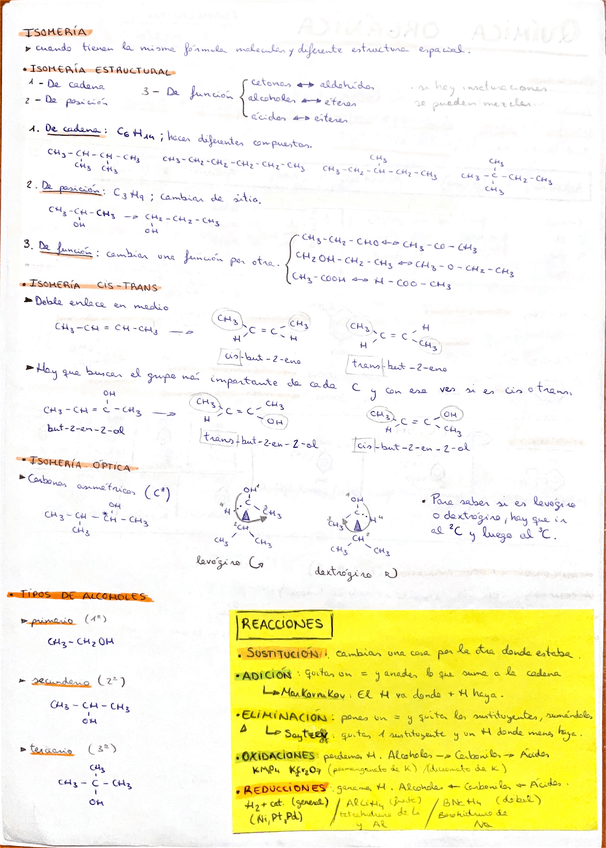 ISOMERÍA
► cuando tienen la misma fórmula molecular y diferente estructura espacial.
• ISOMERÍA ESTRUCTURAL
1 - De cadena
2 - De posición
3 - De función
cetonas ↔ aldehídos
alcoholes ↔ éteres
ácidos ↔ ésteres
• si hay insaturaciones
se pueden mezclar
1. De cadena: C6H14; hacer diferentes compuestos.
CH3-CH-CH-CH3 CH3-CH2-CH2-CH2-CH2-CH3 CH3-CH2-CH-CH2-CH3 CH3-C-CH2-CH3
CH3 CH3 CH3 CH3 CH3
2. De posición: C3H9; cambiar de sitio.
CH3-CH-CH3 → CH2-CH2-CH3
OH OH
3. De función: cambiar una función por otra.
CH3-CH2-CHO ↔ CH3-CO-CH3
CH2OH-CH2-CH3 ↔ CH3-O-CH2-CH3
CH3-COOH ↔ H-COO-CH3
• ISOMERÍA CIS-TRANS
► Doble enlace en medio
CH3-CH=CH-CH3 →
CH3 CH3 CH3 H
C=C C=C
H H H CH3
cis-but-2-eno trans-but-2-eno
► Hay que buscar el grupo más importante de cada C y con ese ves si es cis o trans.
OH
CH3-CH=C-CH3 →
but-2-en-2-ol
CH3 CH3 CH3 OH
C=C C=C
H OH H CH3
trans-but-2-en-2-ol cis-but-2-en-2-ol
• ISOMERÍA ÓPTICA
► Carbonos asimétricos (C*)
OH
CH3-CH-CH-CH3
CH3
OH1
C
3CH3
2CH
CH3 CH3
levógiro
1OH
H4
CH3
CH2
CH3 CH3
dextrógiro
• Para saber si es levógiro
o dextrógiro, hay que ir
al 2C y luego al 3C.
• TIPOS DE ALCOHOLES
► primario (1º)
CH3-CH2OH
► secundario (2º)
CH3-CH-CH3
OH
► terciario (3º)
CH3
CH3-C-CH3
OH
REACCIONES
• SUSTITUCIÓN: cambiar una cosa por la otra donde estaba.
• ADICIÓN: quitas un = y añades lo que sume a la cadena
↳ Markovnikov: El H va donde + H haya.
• ELIMINACIÓN: pones un = y quitas los sustituyentes, sumándolos
Δ ↳ Saytzeff: quitas 1 sustituyente y un H donde menos haya.
• OXIDACIONES: perdemos H. Alcoholes → Carbonilos → Ácidos
KMnO4 K2Cr2O7 (permanganato de K) / (dicromato de K)
• REDUCCIONES: ganamos H. Alcoholes ← Carbonilos ← Ácidos.
H2 + cat. (general) / AlLiH4 (fuerte) / BNaH4 (débil)
(Ni, Pt, Pd) tetrahidruro de Li Borohidruro de
y Al Na